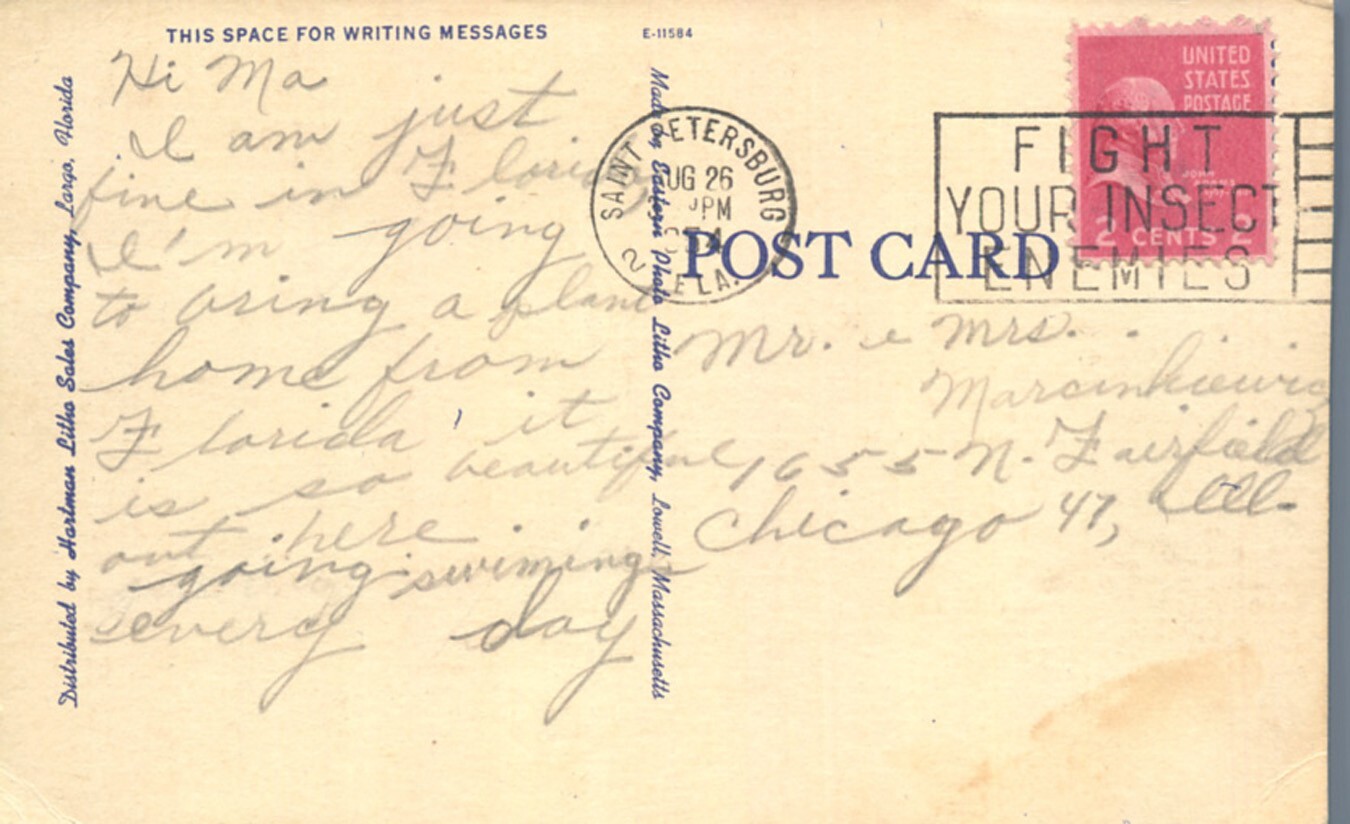 THIS SPACE FOR WRITING MESSAGES
E-11584
Distributed by Hartman Litho Sales Company, Largo, Florida
Hi Ma
I am just
fine in Florida
I'm going
to bring a plant
home from
Florida it
is so beautiful
out here
going swiming
every day
Made by Eastern Photo Litho Company, Lowell, Massachusetts
SAINT PETERSBURG
AUG 26
PM
FLA.
2
POST CARD
UNITED
STATES
POSTAGE
JOHN
ADAMS
2 CENTS 2
FIGHT
YOUR INSECT
ENEMIES
Mr. & Mrs.
Marcinkiewicz
1655 N. Fairfield
Chicago 47, Ill.